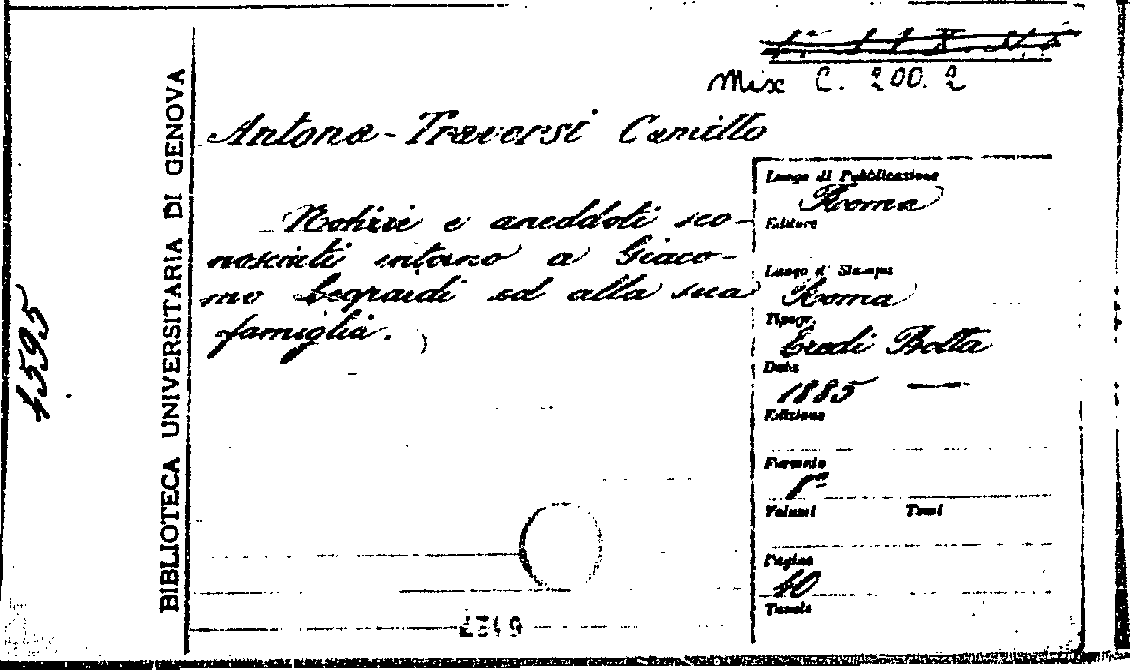 Mix C. 200. 2
Antona-Traversi Camillo
Notizie e aneddoti sco-
nosciuti intorno a Giaco-
mo Leopardi ed alla sua
famiglia.
BIBLIOTECA UNIVERSITARIA DI GENOVA
4595
Luogo di Pubblicazione
Roma
Editore
Luogo di Stampa
Roma
Tipogr.
Eredi Botta
Data
1885 —
Edizione
Formato
8°
Volumi Tomi
Pagine
40
Tavole